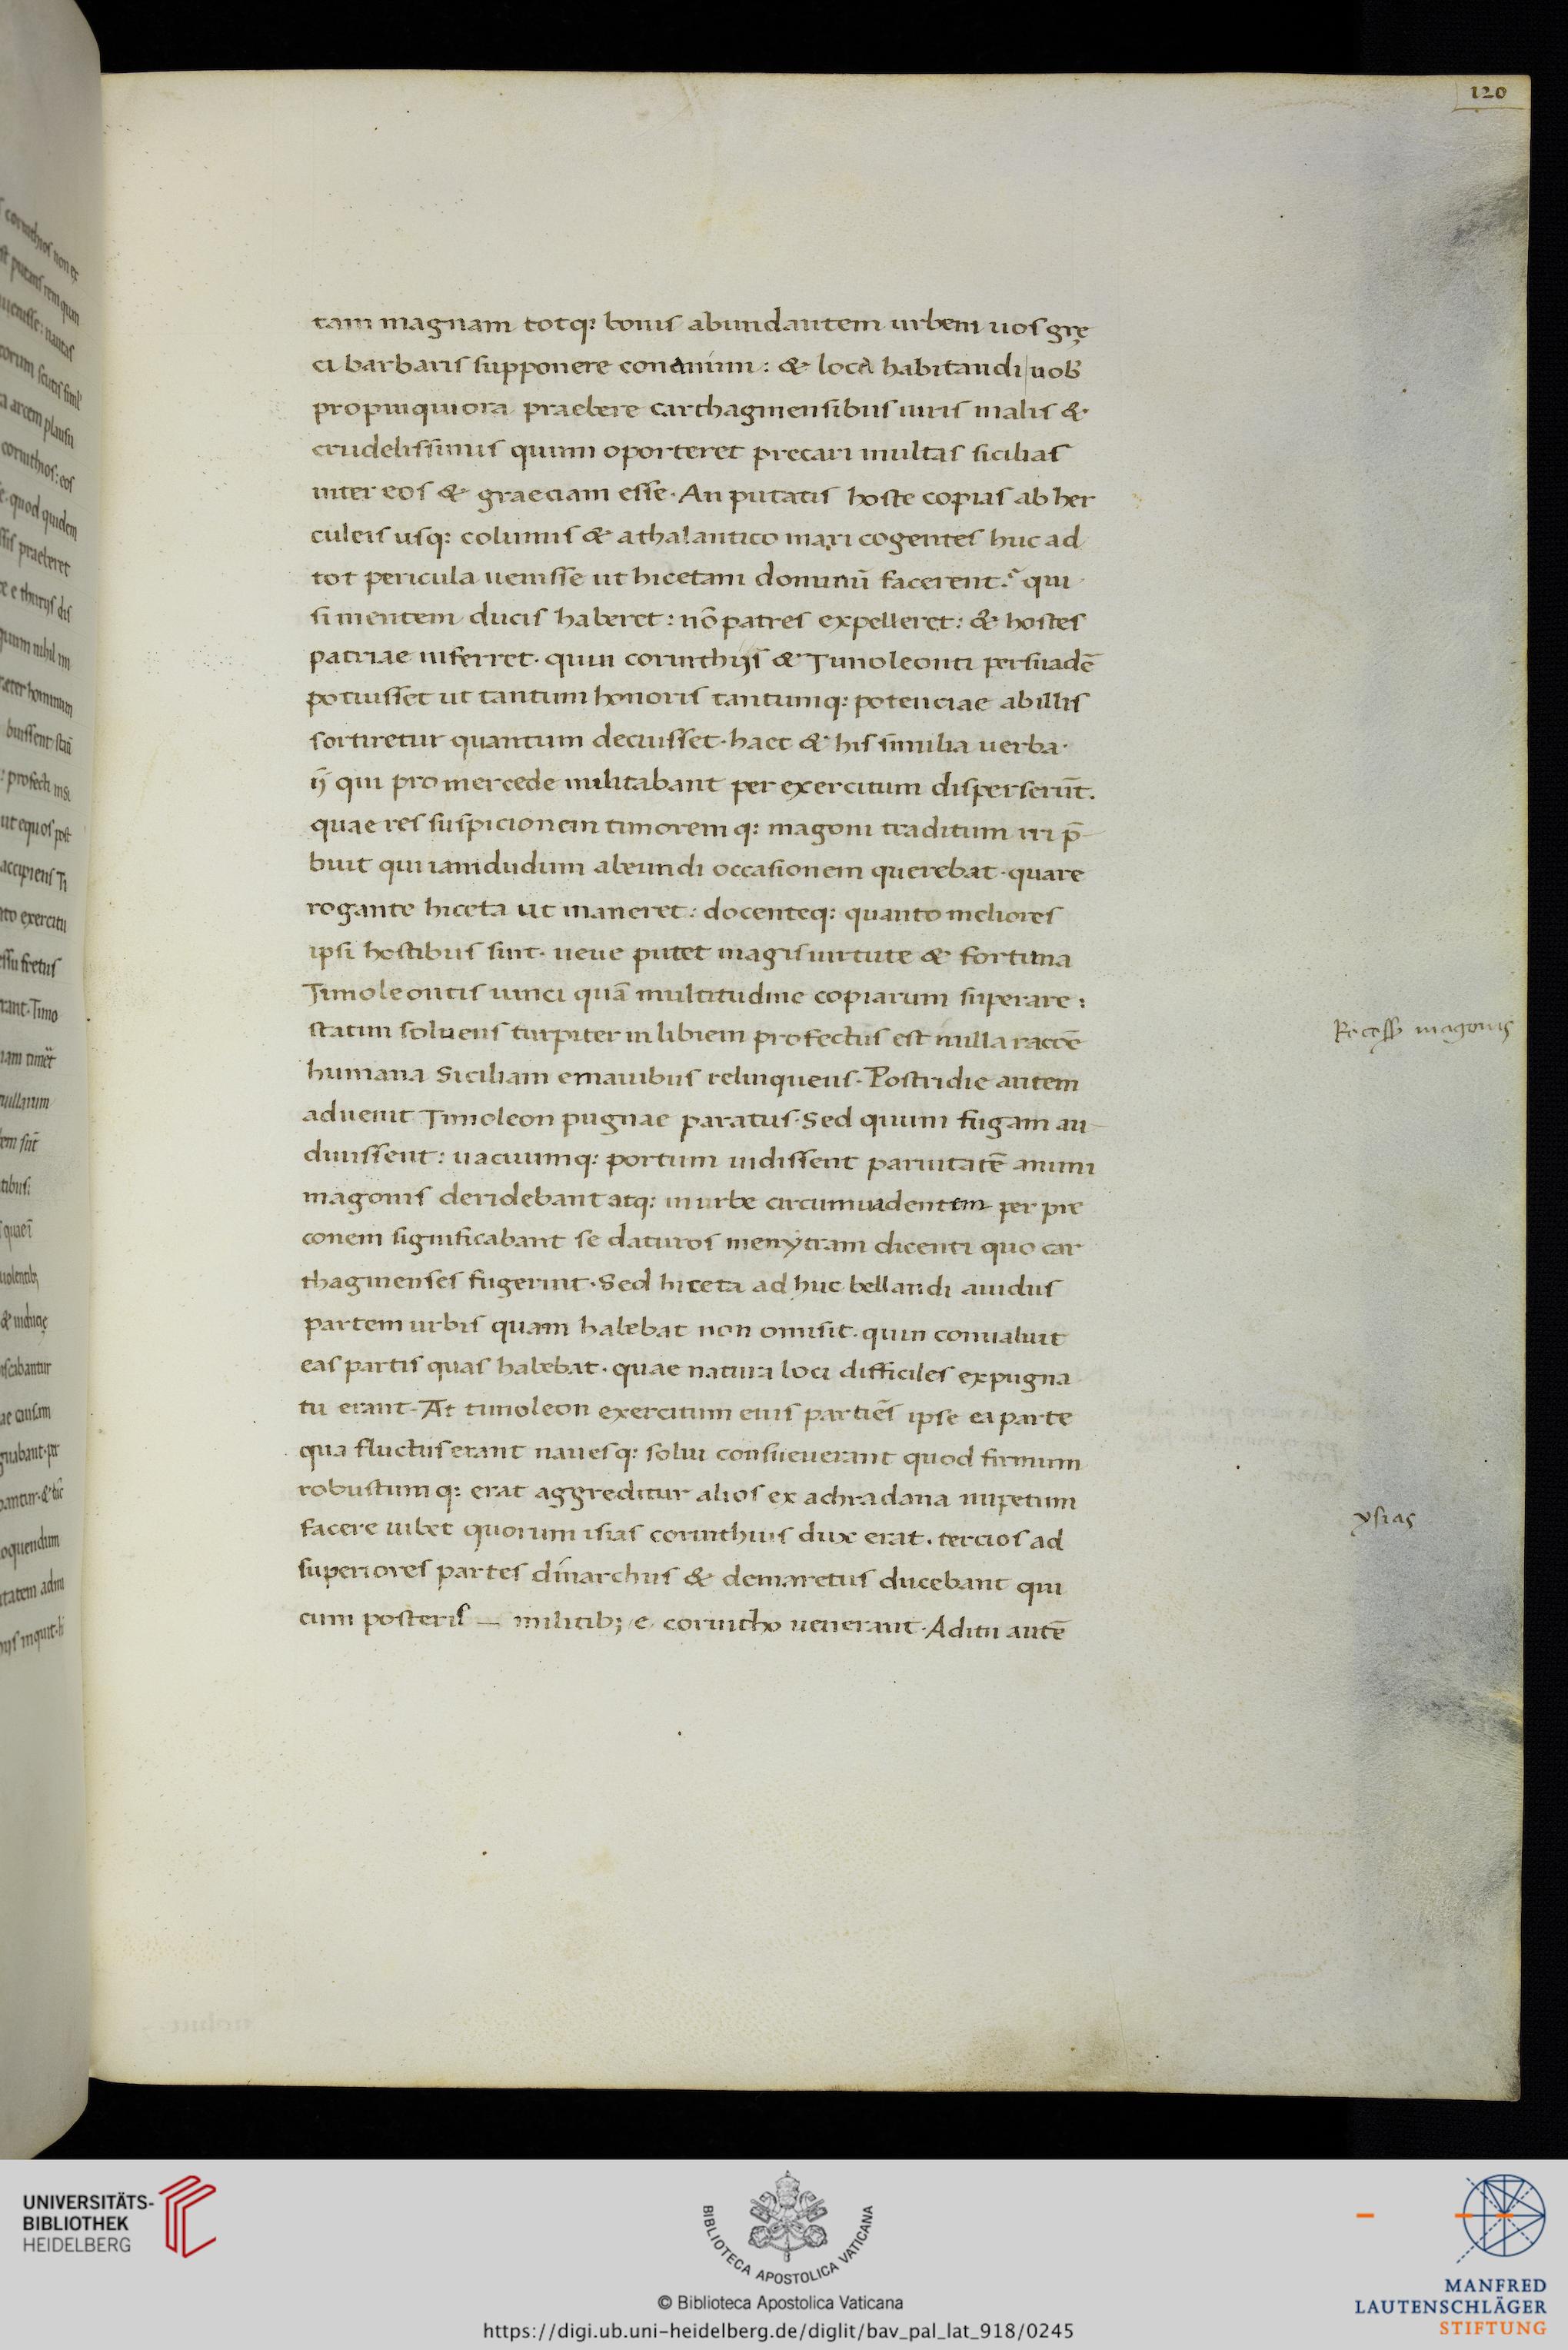 120
tam magnam totq: bonis abundantem urbem uos grę
ci barbaris supponere conamini: & loca habitandi uob
propinquiora praebere carthaginensibus uiris malis &
crudelissimis quum oporteret precari multas sicilias
inter eos & graeciam esse. An putatis hoste copias ab her
culeis usq: columnis & athalantico mari cogentes huc ad
tot pericula uenisse ut hicetam dominū facerent? qui
si mentem ducis haberet: nō patres expelleret: & hostes
patriae inferret. quin corinthijs & Timoleonti persuadē
potuisset ut tantum honoris tantumq: potenciae ab illis
sortiretur quantum decuisset. haec & his similia uerba
ij qui pro mercede militabant per exercitum disperserūt.
quae res suspicionem timorem q: magoni traditum iri p̄
buit qui iamdudum abeundi occasionem querebat. quare
rogante hiceta ut maneret: docenteq: quanto meliores
ipsi hostibus sint. neue putet magis uirtute & fortuna
Timoleontis uinci quā multitudine copiarum superare:
statim soluens turpiter in libiem profectus est nulla racōe
humana Siciliam e manibus relinquens. Postridie autem
aduenit Timoleon pugnae paratus. Sed quum fugam au
diuissent: uacuumq: portum uidissent paruitatē animi
magonis deridebant atq: in urbe circumuadentem per pre
conem significabant se daturos menytram dicenti quo car
thaginenses fugerint. Sed hiceta ad huc bellandi auidus
partem urbis quam habebat non omisit. quin conualuit
eas partis quas habebat. quae natura loci difficiles expugna
tu erant. At timoleon exercitum eius partiēs ipse ea parte
qua fluctus erant nauesq: solui consueuerant quod firmum
robustum q: erat aggreditur alios ex achradana impetum
facere iubet quorum isias corinthius dux erat. tercios ad
superiores partes dinarchus & demaretus ducebant qui
cum posteris — militib; e corintho uenerant. Aditu autē
Recessꝰ magonis
ysias
UNIVERSITÄTS-
BIBLIOTHEK
HEIDELBERG
BIBLIOTECA APOSTOLICA VATICANA
© Biblioteca Apostolica Vaticana
https://digi.ub.uni-heidelberg.de/diglit/bav_pal_lat_918/0245
MANFRED
LAUTENSCHLÄGER
STIFTUNG